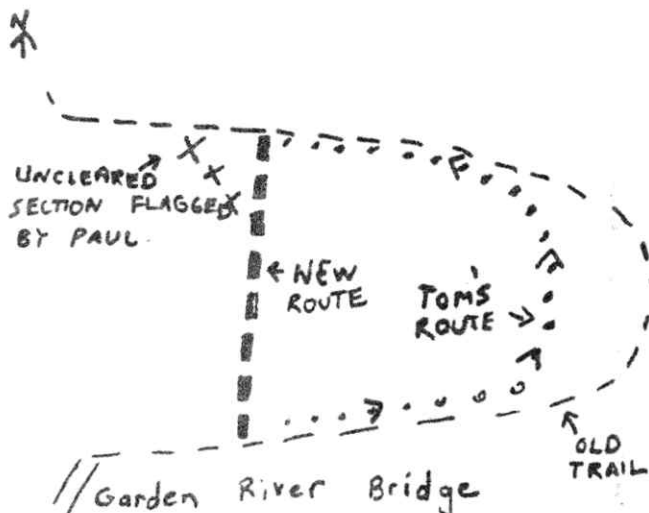 N
UNCLEARED
SECTION FLAGGED
BY PAUL
NEW
ROUTE
TOM'S
ROUTE
OLD
TRAIL
Garden River Bridge